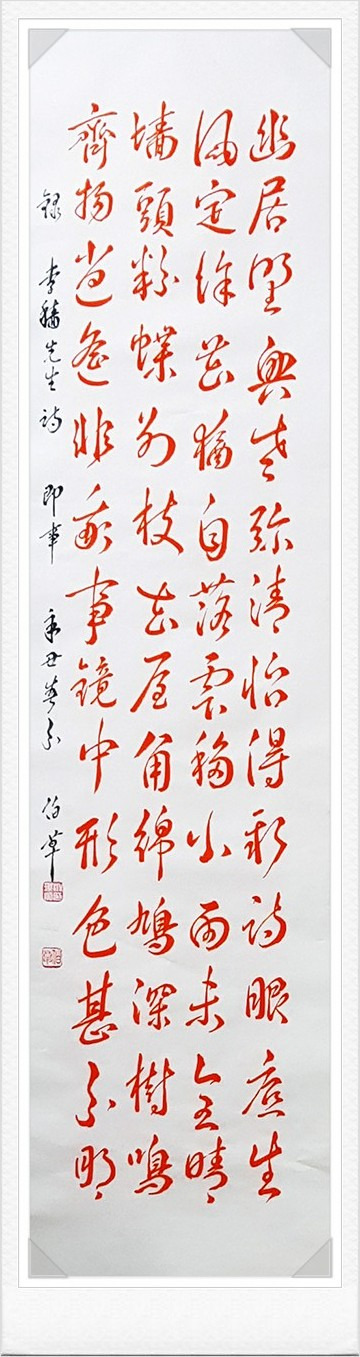 幽居野興老弥清恰得新詩眼底生
風定餘花猶自落雲移小雨未全晴
墻頭粉蝶別枝去屋角綿鳩深樹鳴
齊物逍遙非我事鏡中形色甚分明
錄 李穡先生詩 即事 辛丑春分 伯草